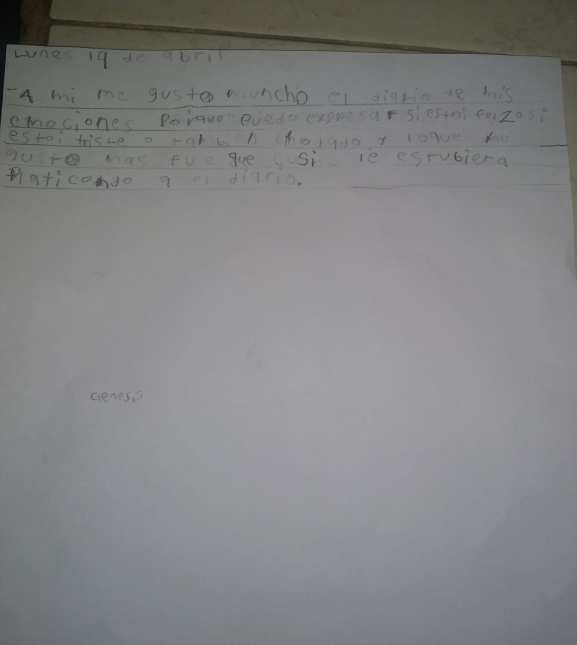 Lunes 19 de abril
-A mi me gusto muncho el diario de mis
emociones Porque puedo expresar si estoi feiz o si
estoi triste o tanbien enojado y loque me
gusto mas fue que si le estubiera
Platicando a el diario.
Genesis